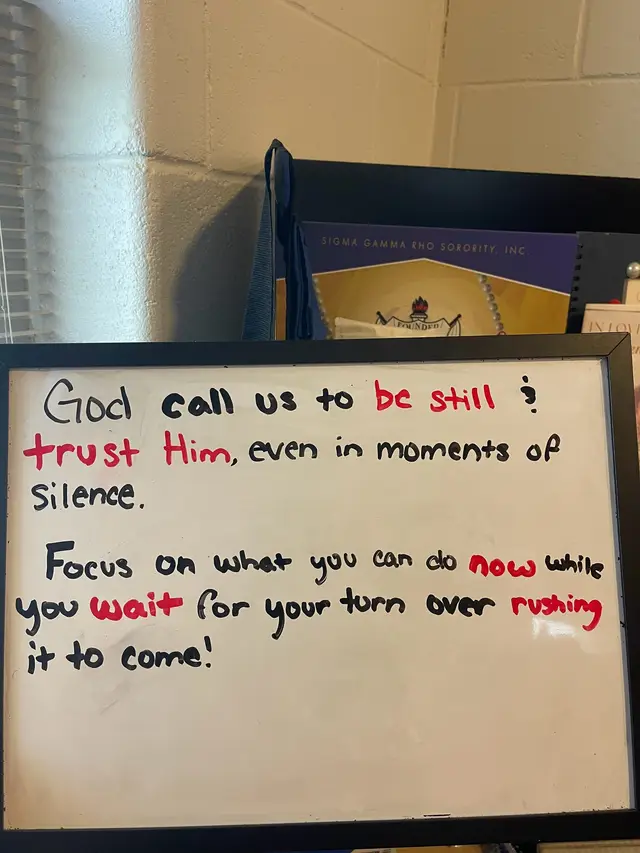 SIGMA GAMMA RHO SORORITY, INC
FOUNDED
IN LOV
God call us to be still &
trust Him, even in moments of
silence.
Focus on what you can do now while
you wait for your turn over rushing
it to come!